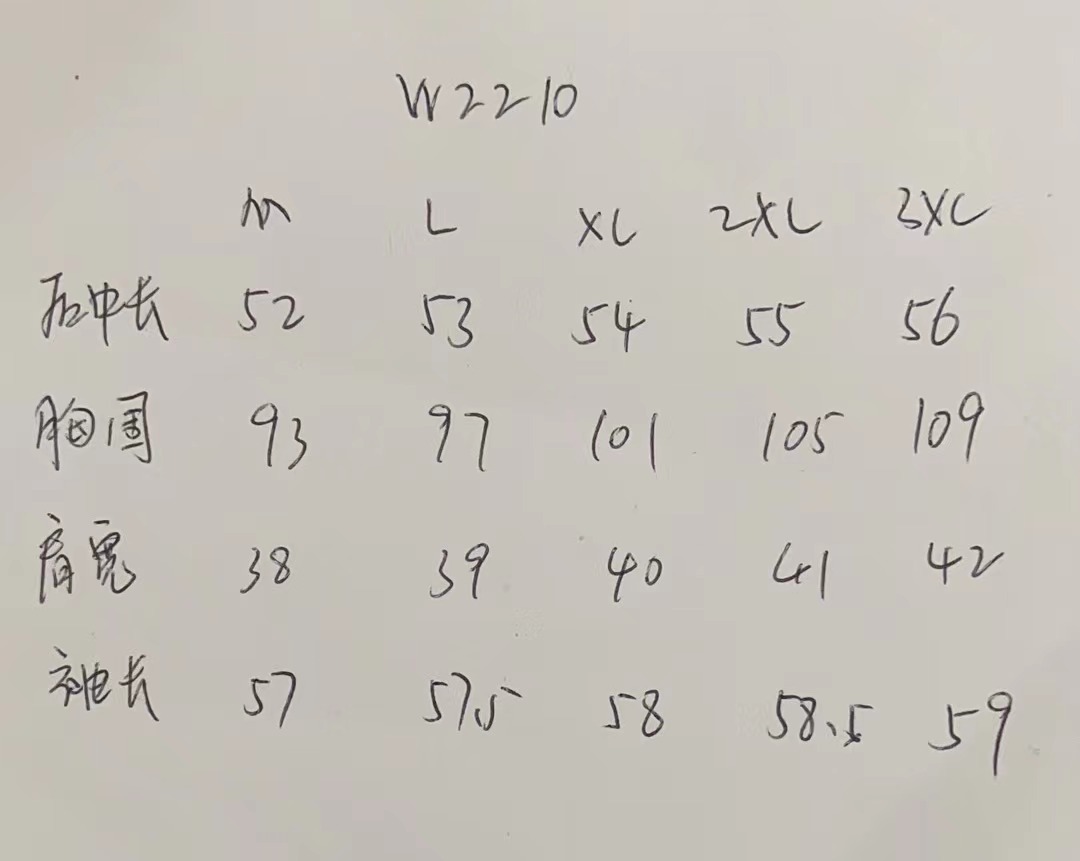 W2210
M L XL 2XL 3XL
后中长 52 53 54 55 56
胸围 93 97 101 105 109
肩宽 38 39 40 41 42
袖长 57 57.5 58 58.5 59